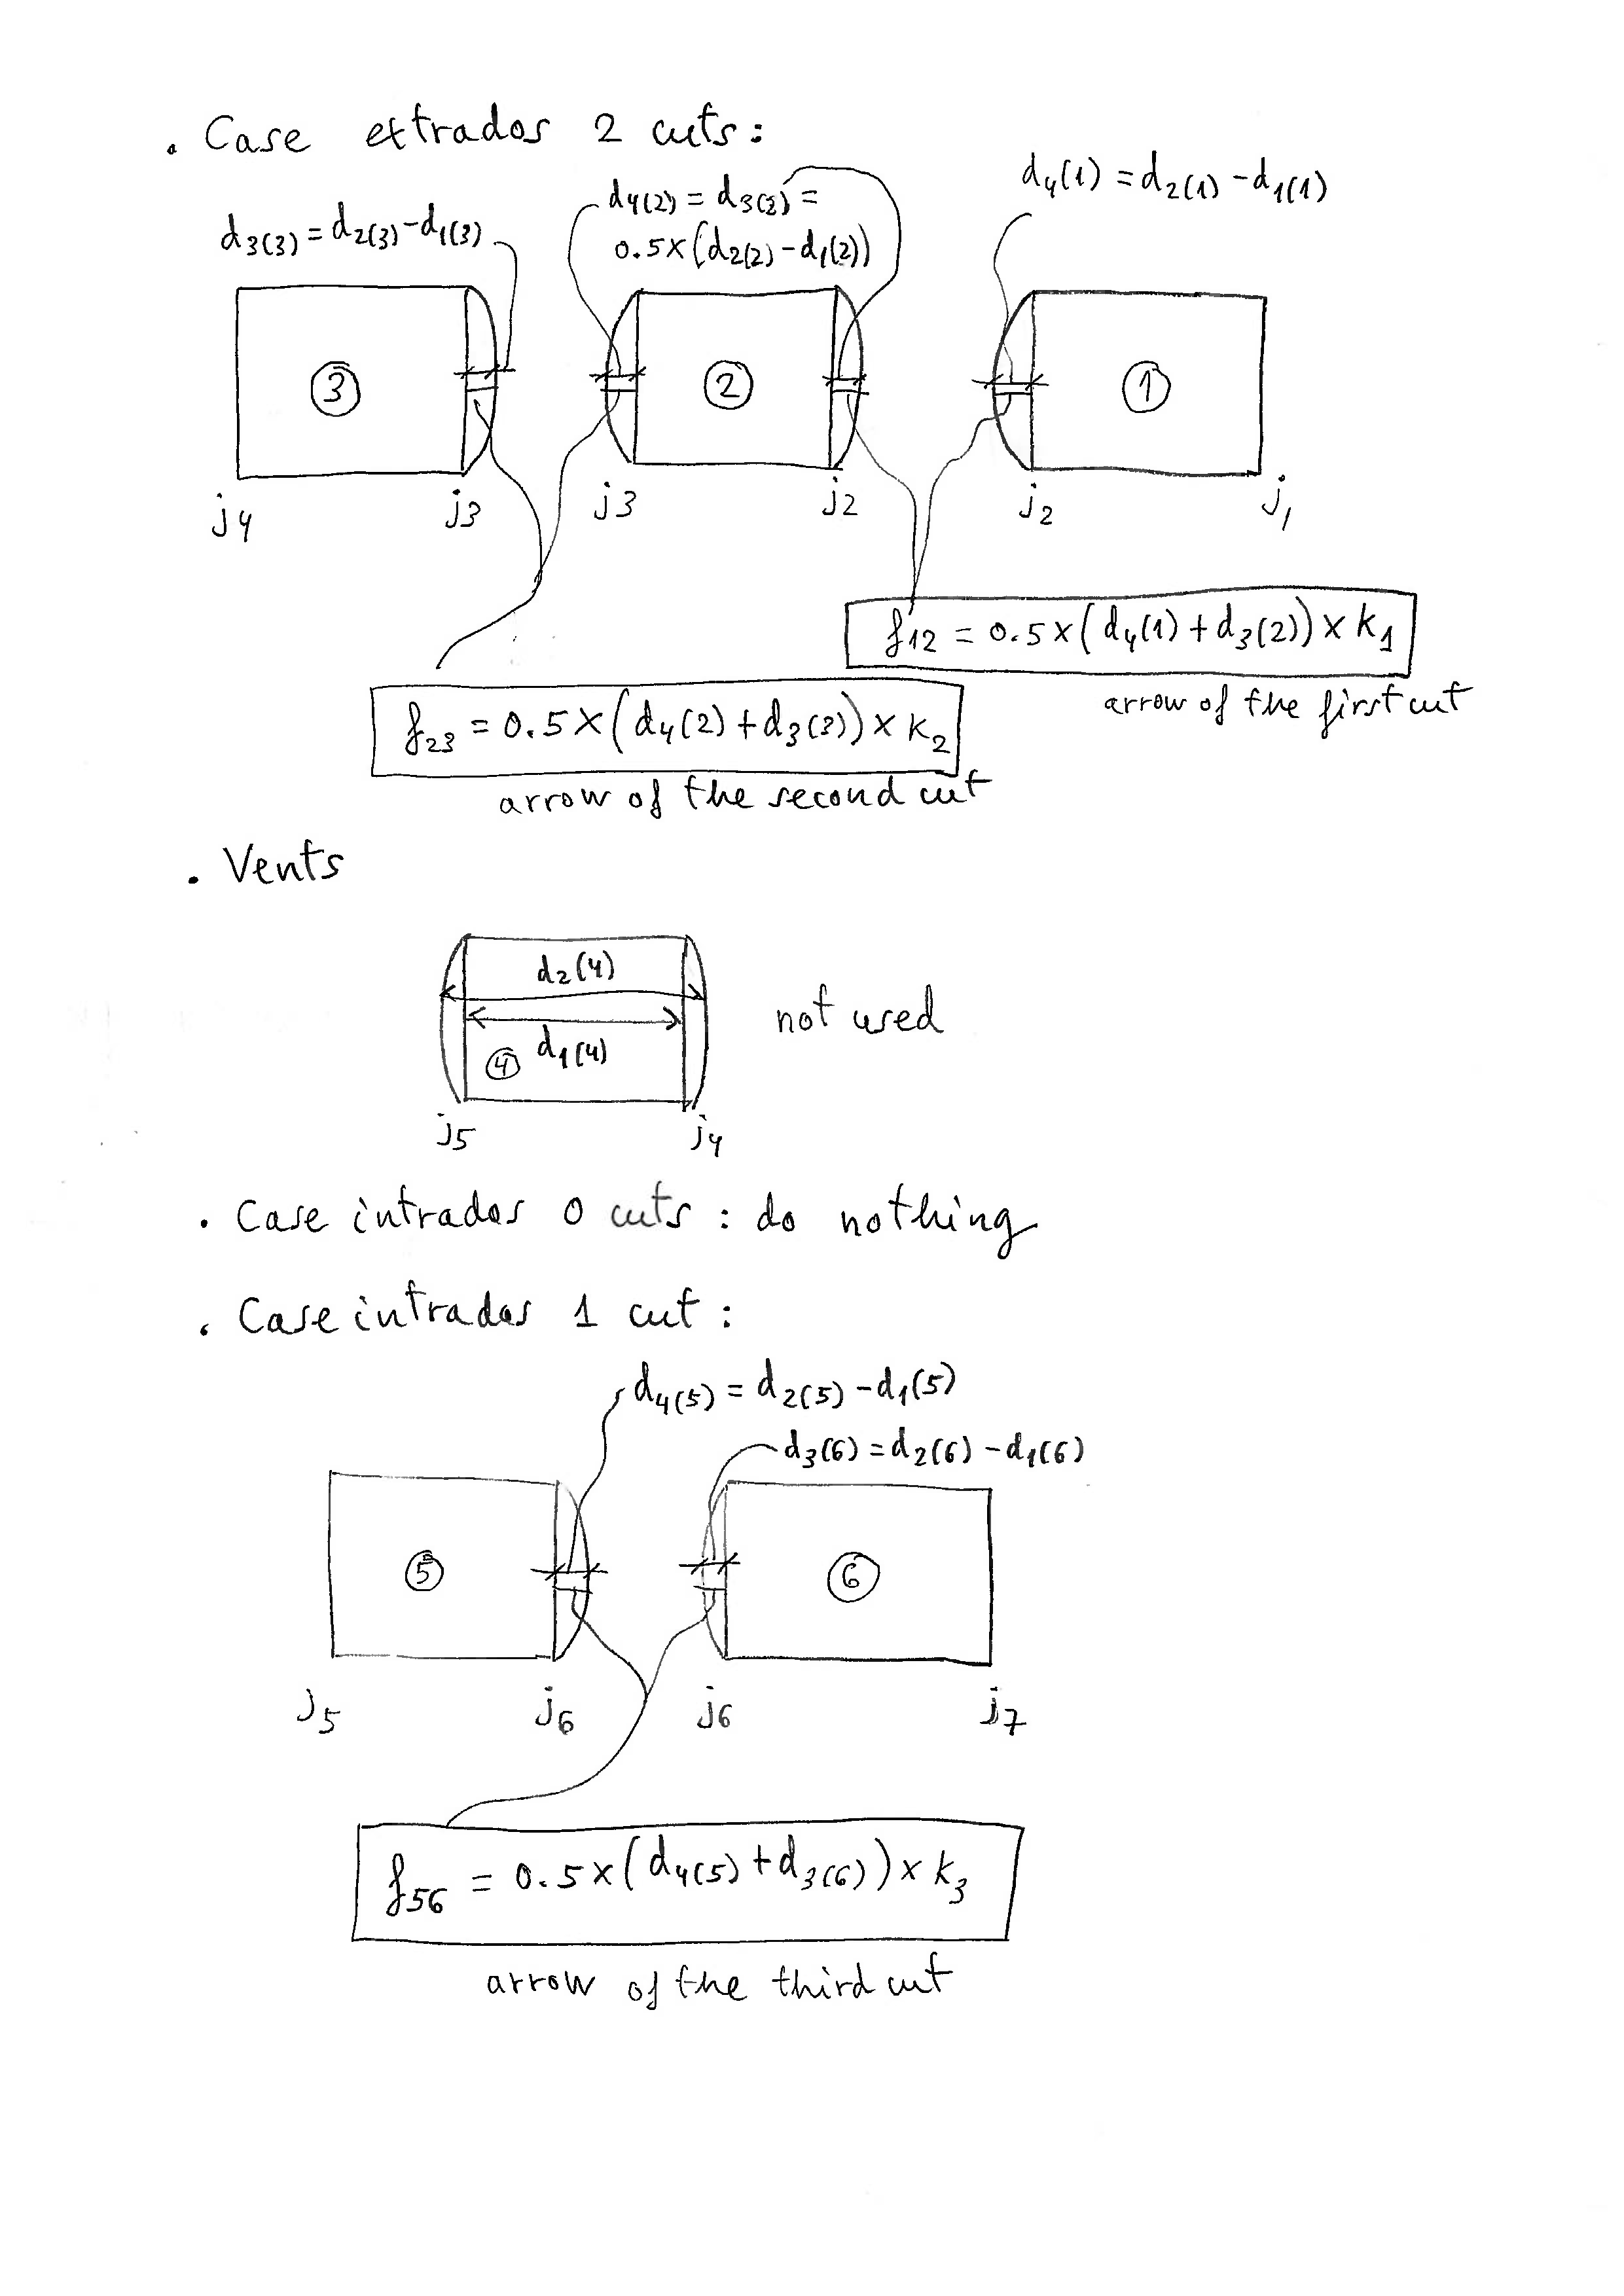 . Case extrados 2 cuts:
d4(1) = d2(1) - d1(1)
d4(2) = d3(2) =
0.5x(d2(2) - d1(2))
d3(3) = d2(3) - d1(3)
3
2
1
j4
j3
j3
j2
j2
j1
f12 = 0.5x(d4(1) + d3(2)) x k1
arrow of the first cut
f23 = 0.5x(d4(2) + d3(3)) x k2
arrow of the second cut
. Vents
d2(4)
d1(4)
4
not used
j5
j4
. Case intrados 0 cuts : do nothing
. Case intrados 1 cut :
d4(5) = d2(5) - d1(5)
d3(6) = d2(6) - d1(6)
5
6
j5
j6
j6
j7
f56 = 0.5x(d4(5) + d3(6)) x k3
arrow of the third cut